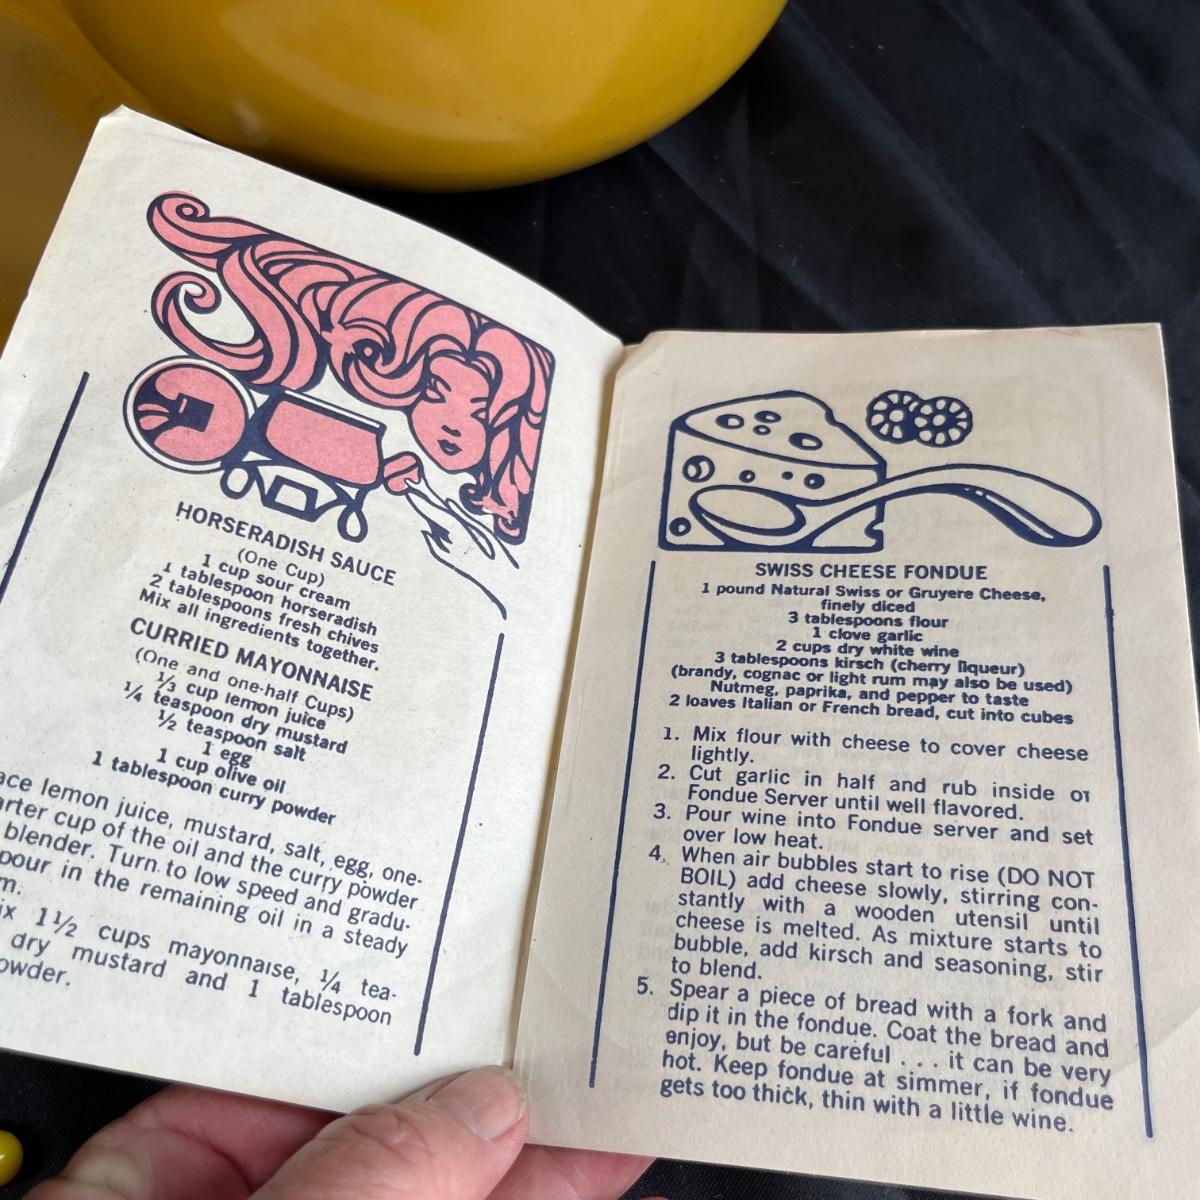 HORSERADISH SAUCE
(One Cup)
1 cup sour cream
1 tablespoon horseradish
2 tablespoons fresh chives
Mix all ingredients together.
CURRIED MAYONNAISE
(One and one-half Cups)
⅓ cup lemon juice
¼ teaspoon dry mustard
½ teaspoon salt
1 egg
1 cup olive oil
1 tablespoon curry powder
lemon juice, mustard, salt, egg, one-
cup of the oil and the curry powder
blender. Turn to low speed and gradu-
pour in the remaining oil in a steady
1½ cups mayonnaise, ¼ tea-
dry mustard and 1 tablespoon
SWISS CHEESE FONDUE
1 pound Natural Swiss or Gruyere Cheese,
finely diced
3 tablespoons flour
1 clove garlic
2 cups dry white wine
3 tablespoons kirsch (cherry liqueur)
(brandy, cognac or light rum may also be used)
Nutmeg, paprika, and pepper to taste
2 loaves Italian or French bread, cut into cubes
1. Mix flour with cheese to cover cheese
lightly.
2. Cut garlic in half and rub inside of
Fondue Server until well flavored.
3. Pour wine into Fondue server and set
over low heat.
4. When air bubbles start to rise (DO NOT
BOIL) add cheese slowly, stirring con-
stantly with a wooden utensil until
cheese is melted. As mixture starts to
bubble, add kirsch and seasoning, stir
to blend.
5. Spear a piece of bread with a fork and
dip it in the fondue. Coat the bread and
enjoy, but be careful . . . it can be very
hot. Keep fondue at simmer, if fondue
gets too thick, thin with a little wine.